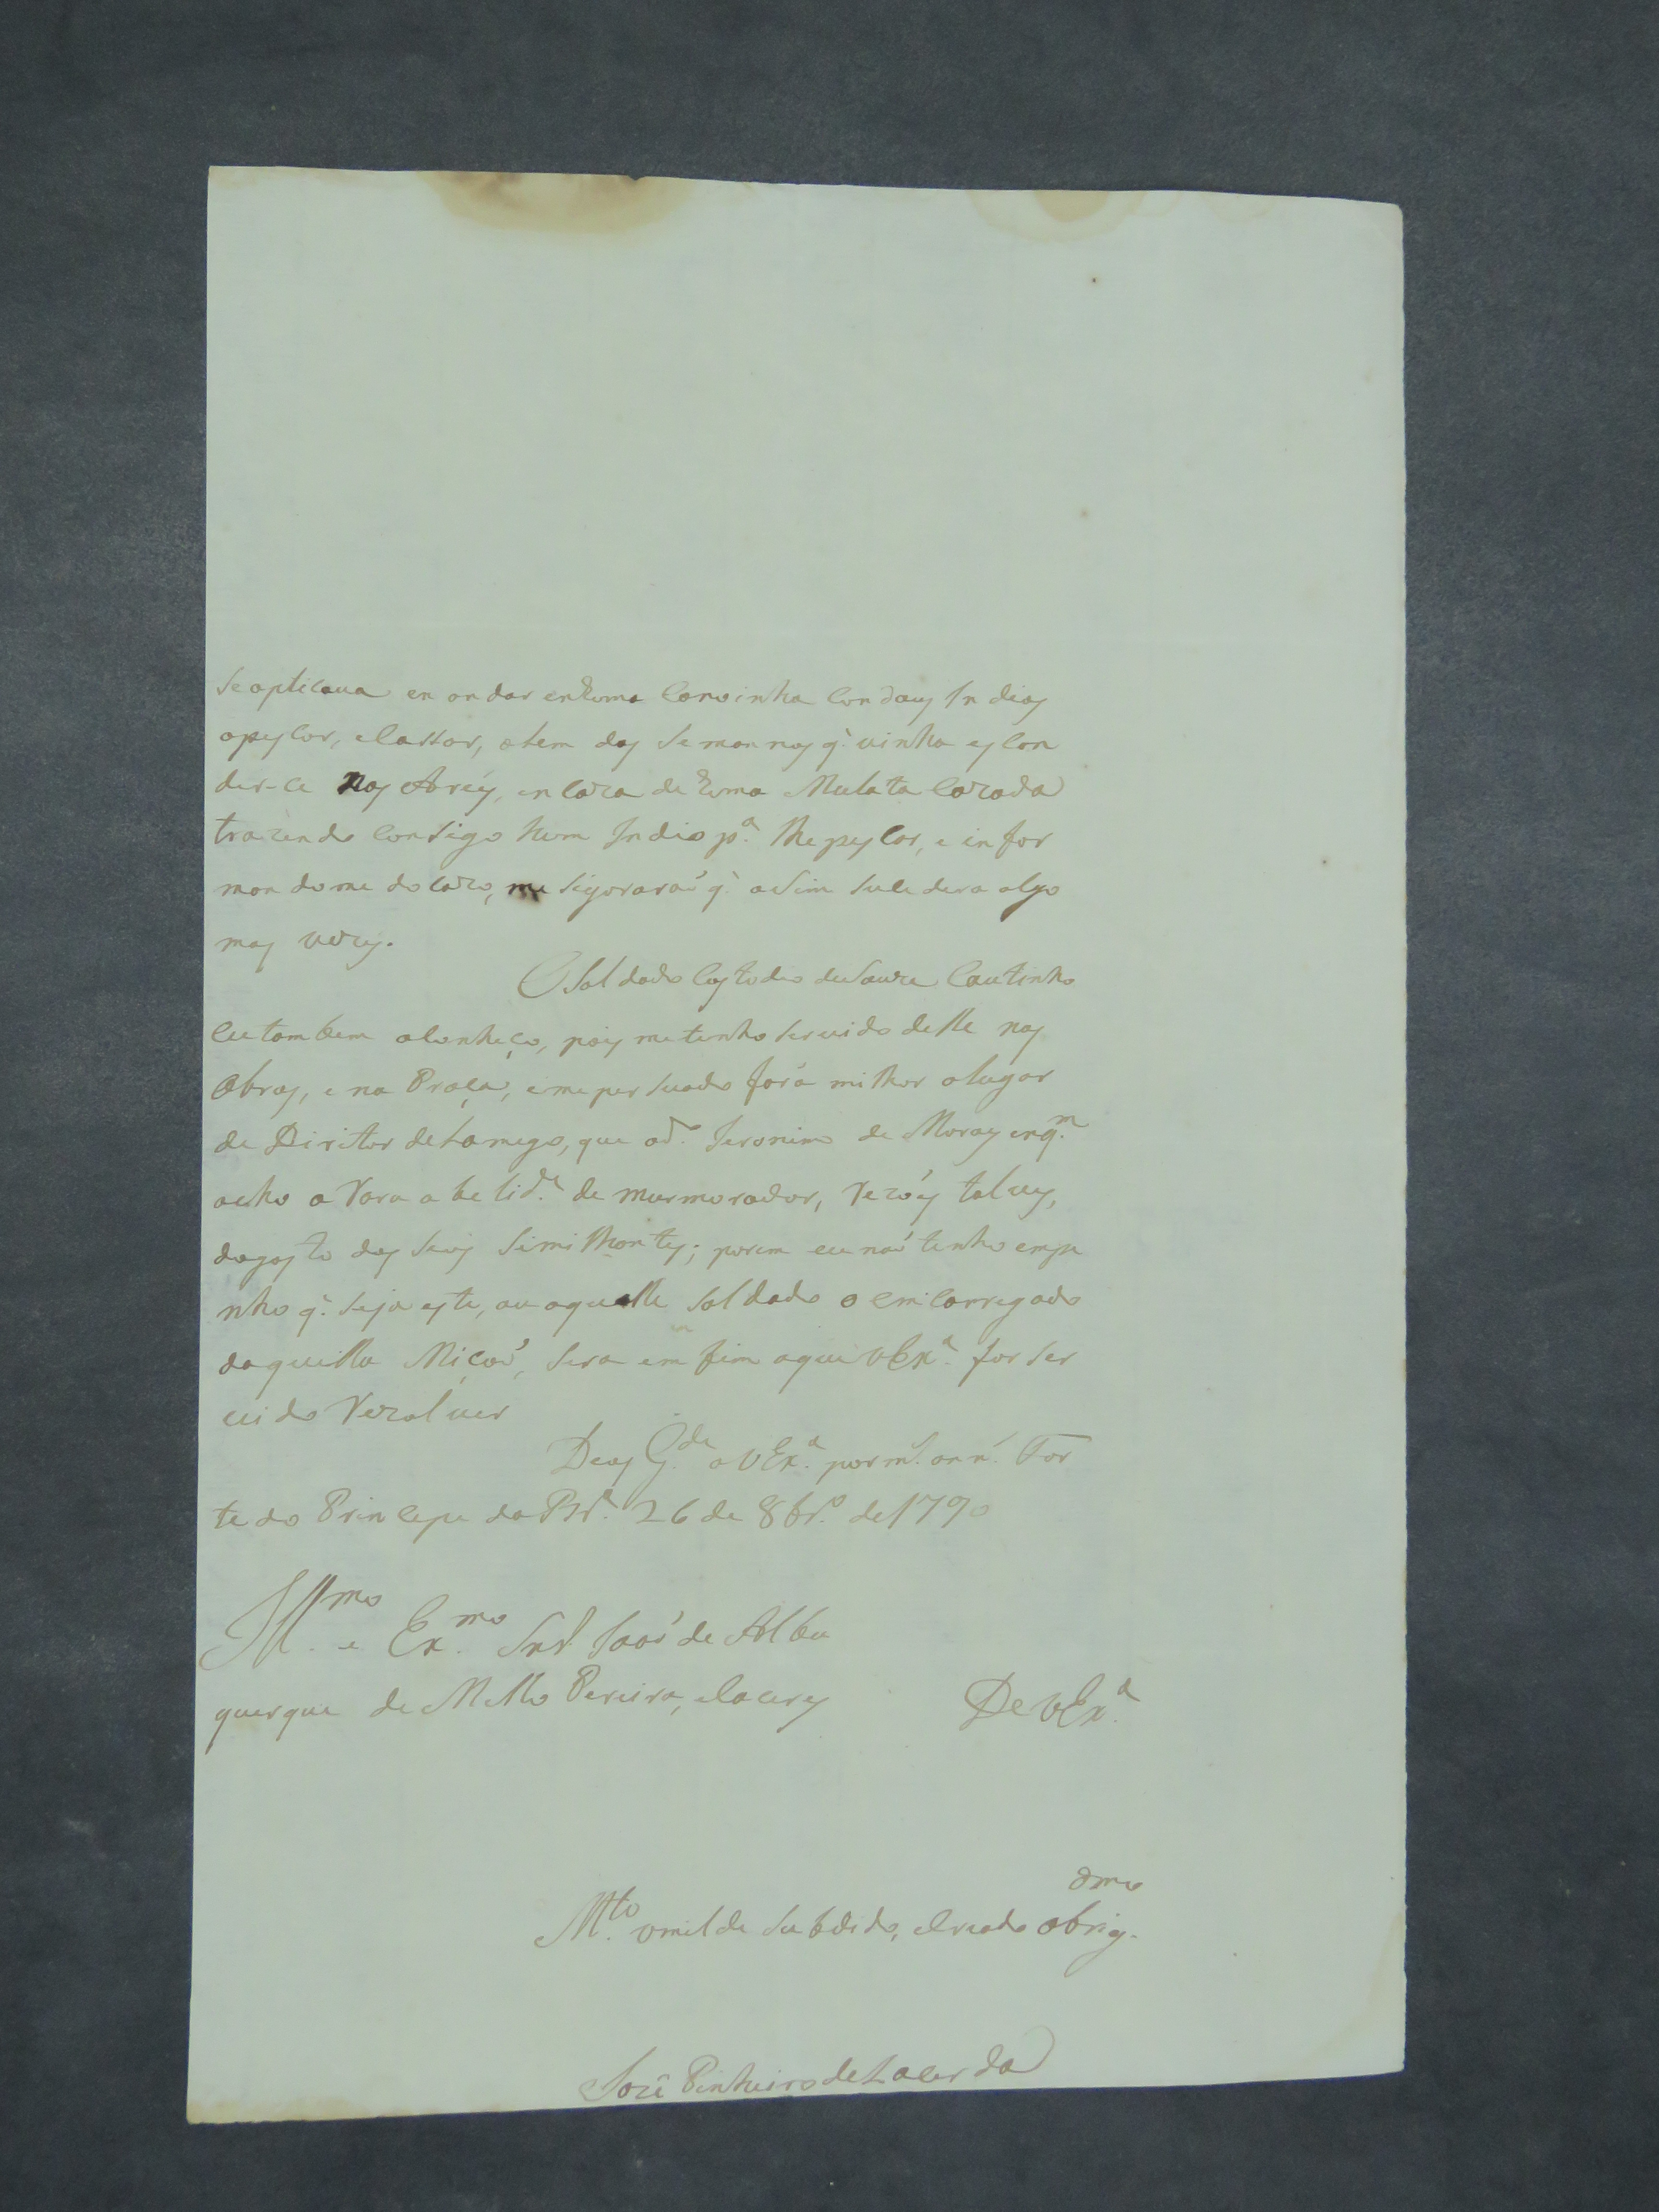 se aplicava en andar en huma canoinha con dous Indios
apescar, e cassar, e tem das semannas q̃. vinha escon
der-ce nas Abres, en caza de huma Mulata cazada
trazendo consigo hum Indio p.ª lhe pescar, e infor
mandome do cazo, me sigoraraõ q̃. asim sucedera algo
mas vezes.
O Soldado Costodio de Souza Coutinho
eu tambem o conheço, pois me tenho servido delle nas
Obras, e na Praça, e me persuado fará milhor o lugar
de Diritor de Lamego, que o d.º Jeronimo de Moraes en q.m
acho a rara abelid.e de murmorador, rezoẽs talves,
do gosto dos seus similhantes; porem eu naõ tenho empe
nho q̃. seja este, ou aquelle soldado o emcarregado
daquella Miçaõ, sera em fim aque V Ex.ª for ser
vido rezolver
Deos G.de a V Ex.ª por m.s ann.s For
te do Princepe da Br.ª 26 de 8br.º de 1790
Ill.mo e Ex.mo Snr. Joaõ de Albu
querque de Mello Pereira, e Caceres
De V Ex.ª
M.to omilde subdido, e criado obrig.dmo
José Pinheiro de Lacerda